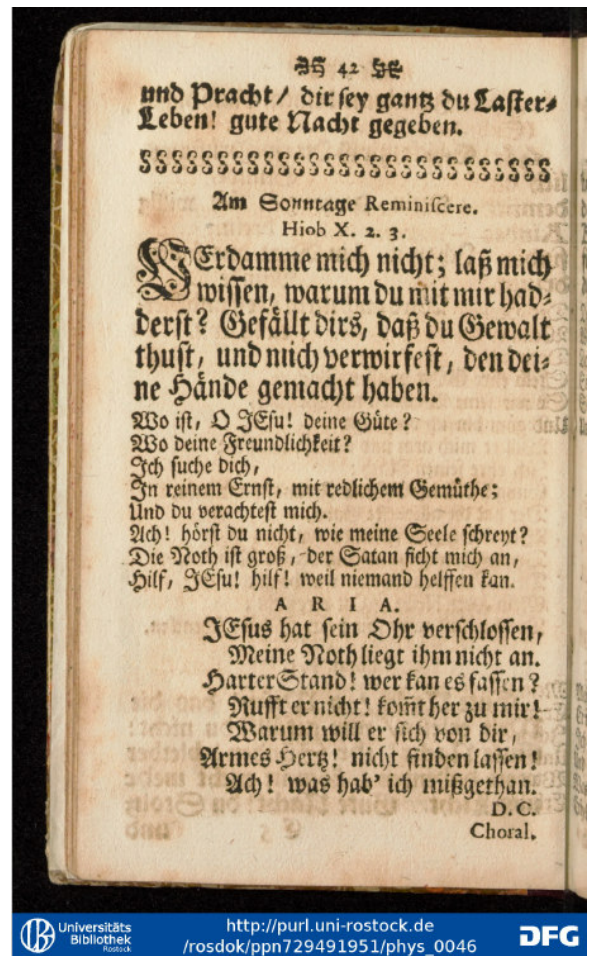 42
und Pracht / dir sey gantz du Laster-
Leben! gute Nacht gegeben.
Am Sonntage Reminiscere.
Hiob X. 2. 3.
VErdamme mich nicht; laß mich
wissen, warum du mit mir had-
derst? Gefällt dirs, daß du Gewalt
thust, und mich verwirfest, den dei-
ne Hände gemacht haben.
Wo ist, O JEsu! deine Güte?
Wo deine Freundlichkeit?
Ich suche dich,
In reinem Ernst, mit redlichem Gemüthe;
Und du verachtest mich.
Ach! hörst du nicht, wie meine Seele schreyt?
Die Noth ist groß, der Satan ficht mich an,
Hilf, JEsu! hilf! weil niemand helffen kan.
A R I A.
JEsus hat sein Ohr verschlossen,
Meine Noth liegt ihm nicht an.
Harter Stand! wer kan es fassen?
Rufft er nicht! kom̃t her zu mir!
Warum will er sich von dir,
Armes Hertz! nicht finden lassen!
Ach! was hab' ich mißgethan.
D.C.
Choral.
Universitäts
Bibliothek
Rostock
http://purl.uni-rostock.de
/rosdok/ppn729491951/phys_0046
DFG